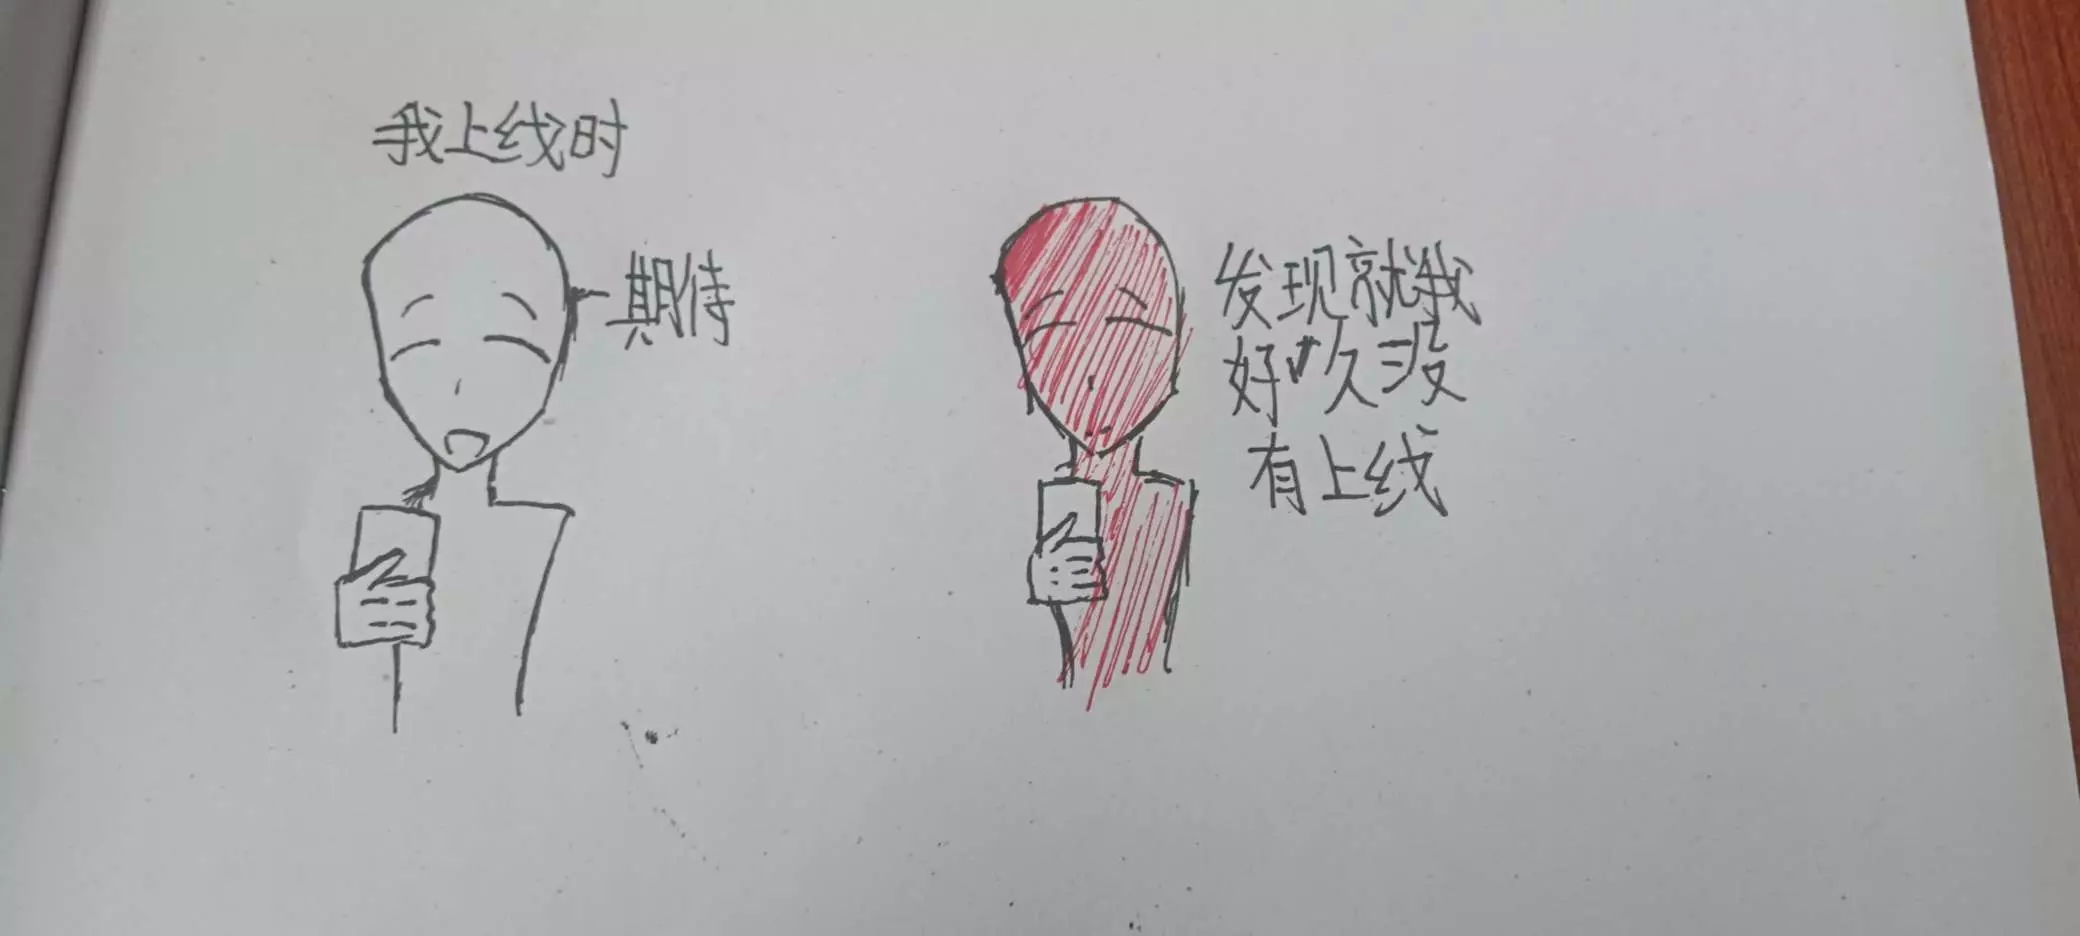 我上线时
期待
发现就我
好久没
有上线